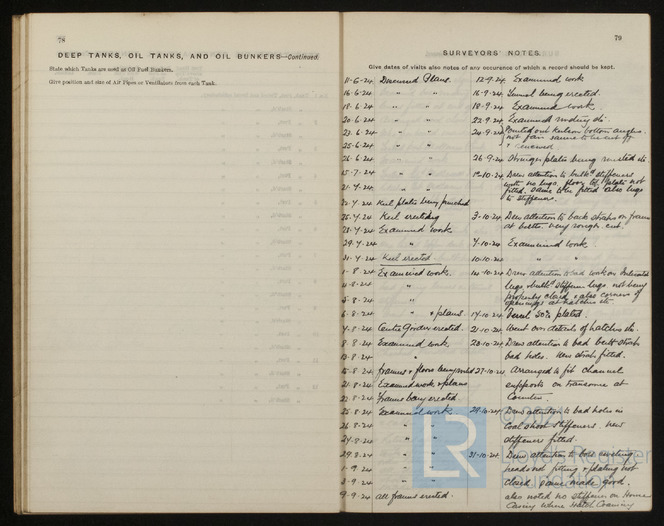 78
DEEP TANKS, OIL TANKS, AND OIL BUNKERS—Continued.
State which Tanks are used as Oil Fuel Bunkers.
Give position and size of Air Pipes or Ventilators from each Tank.
79
SURVEYORS' NOTES.
Give dates of visits also notes of any occurence of which a record should be kept.
11-6-24 Discussed Plans
16-6-24 " "
18-6-24 " "
20-6-24 " "
23-6-24 " "
25-6-24 " "
26-6-24 " "
15-7-24 " "
21-7-24 " "
22-7-24 Keel plates being punched
25-7-24 Keel erecting
28-7-24 Examined work
29-7-24 "
31-7-24 Keel erected
1-8-24 Examined work.
4-8-24 "
5-8-24 "
6-8-24 " & plans.
7-8-24 Centre Girder erected.
8-8-24 Examined work.
13-8-24 "
15-8-24 frames & floors being
21-8-24 Examined work & plans
22-8-24 Frames being erected.
25-8-24 Examined work
26-8-24 " "
27-8-24 " "
29-8-24 " "
1-9-24 " "
8-9-24 " "
9-9-24 all frames erected.
12-9-24 Examined work
16-9-24 being erected.
18-9-24 Examined work.
22-9-24 Examined
24-9-24 Pointed out bottom angles
not fair same to be cut off
& renewed
26-9-24 Stringer plates being
1-10-24 Drew attention to bulkd stiffeners
with no lugs, floor plate not
fitted. Same to be fitted also lugs
to stiffeners.
3-10-24 Drew attention to back straps on frames
at butts. Very rough cut.
7-10-24 Examined work
10-10-24 " "
14-10-24 Drew attention to bad work on
lugs bulk stiffener lugs not being
properly closed & also corners of
openings at hatches etc
17-10-24 Vessel 50% plated.
21-10-24 Went over details of hatches etc.
23-10-24 Drew attention to bad butt straps
bad holes. New straps fitted.
27-10-24 Arranged to fit channel
supports on transome at
Counter.
29-10-24 Drew attention to bad holes in
Coal shoot stiffeners. New
stiffeners fitted.
31-10-24 Drew attention to riveting
heads not fitting & plating not
closed same made good.
also noted no stiffener on
Casing where Hatch Coaming
LR
Lloyd's Register
Foundation